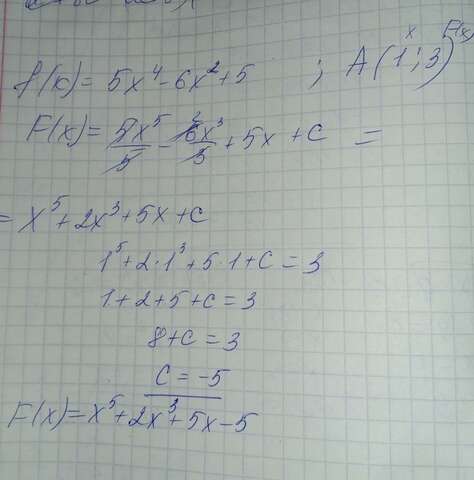 f(x) = 5x⁴ - 6x² + 5 ; A(1; 3)
x F(x)
F(x) = 5x⁵/5 - 6x³/3 + 5x + C =
= x⁵ + 2x³ + 5x + C
1⁵ + 2·1³ + 5·1 + C = 3
1 + 2 + 5 + C = 3
8 + C = 3
C = -5
F(x) = x⁵ + 2x³ + 5x - 5